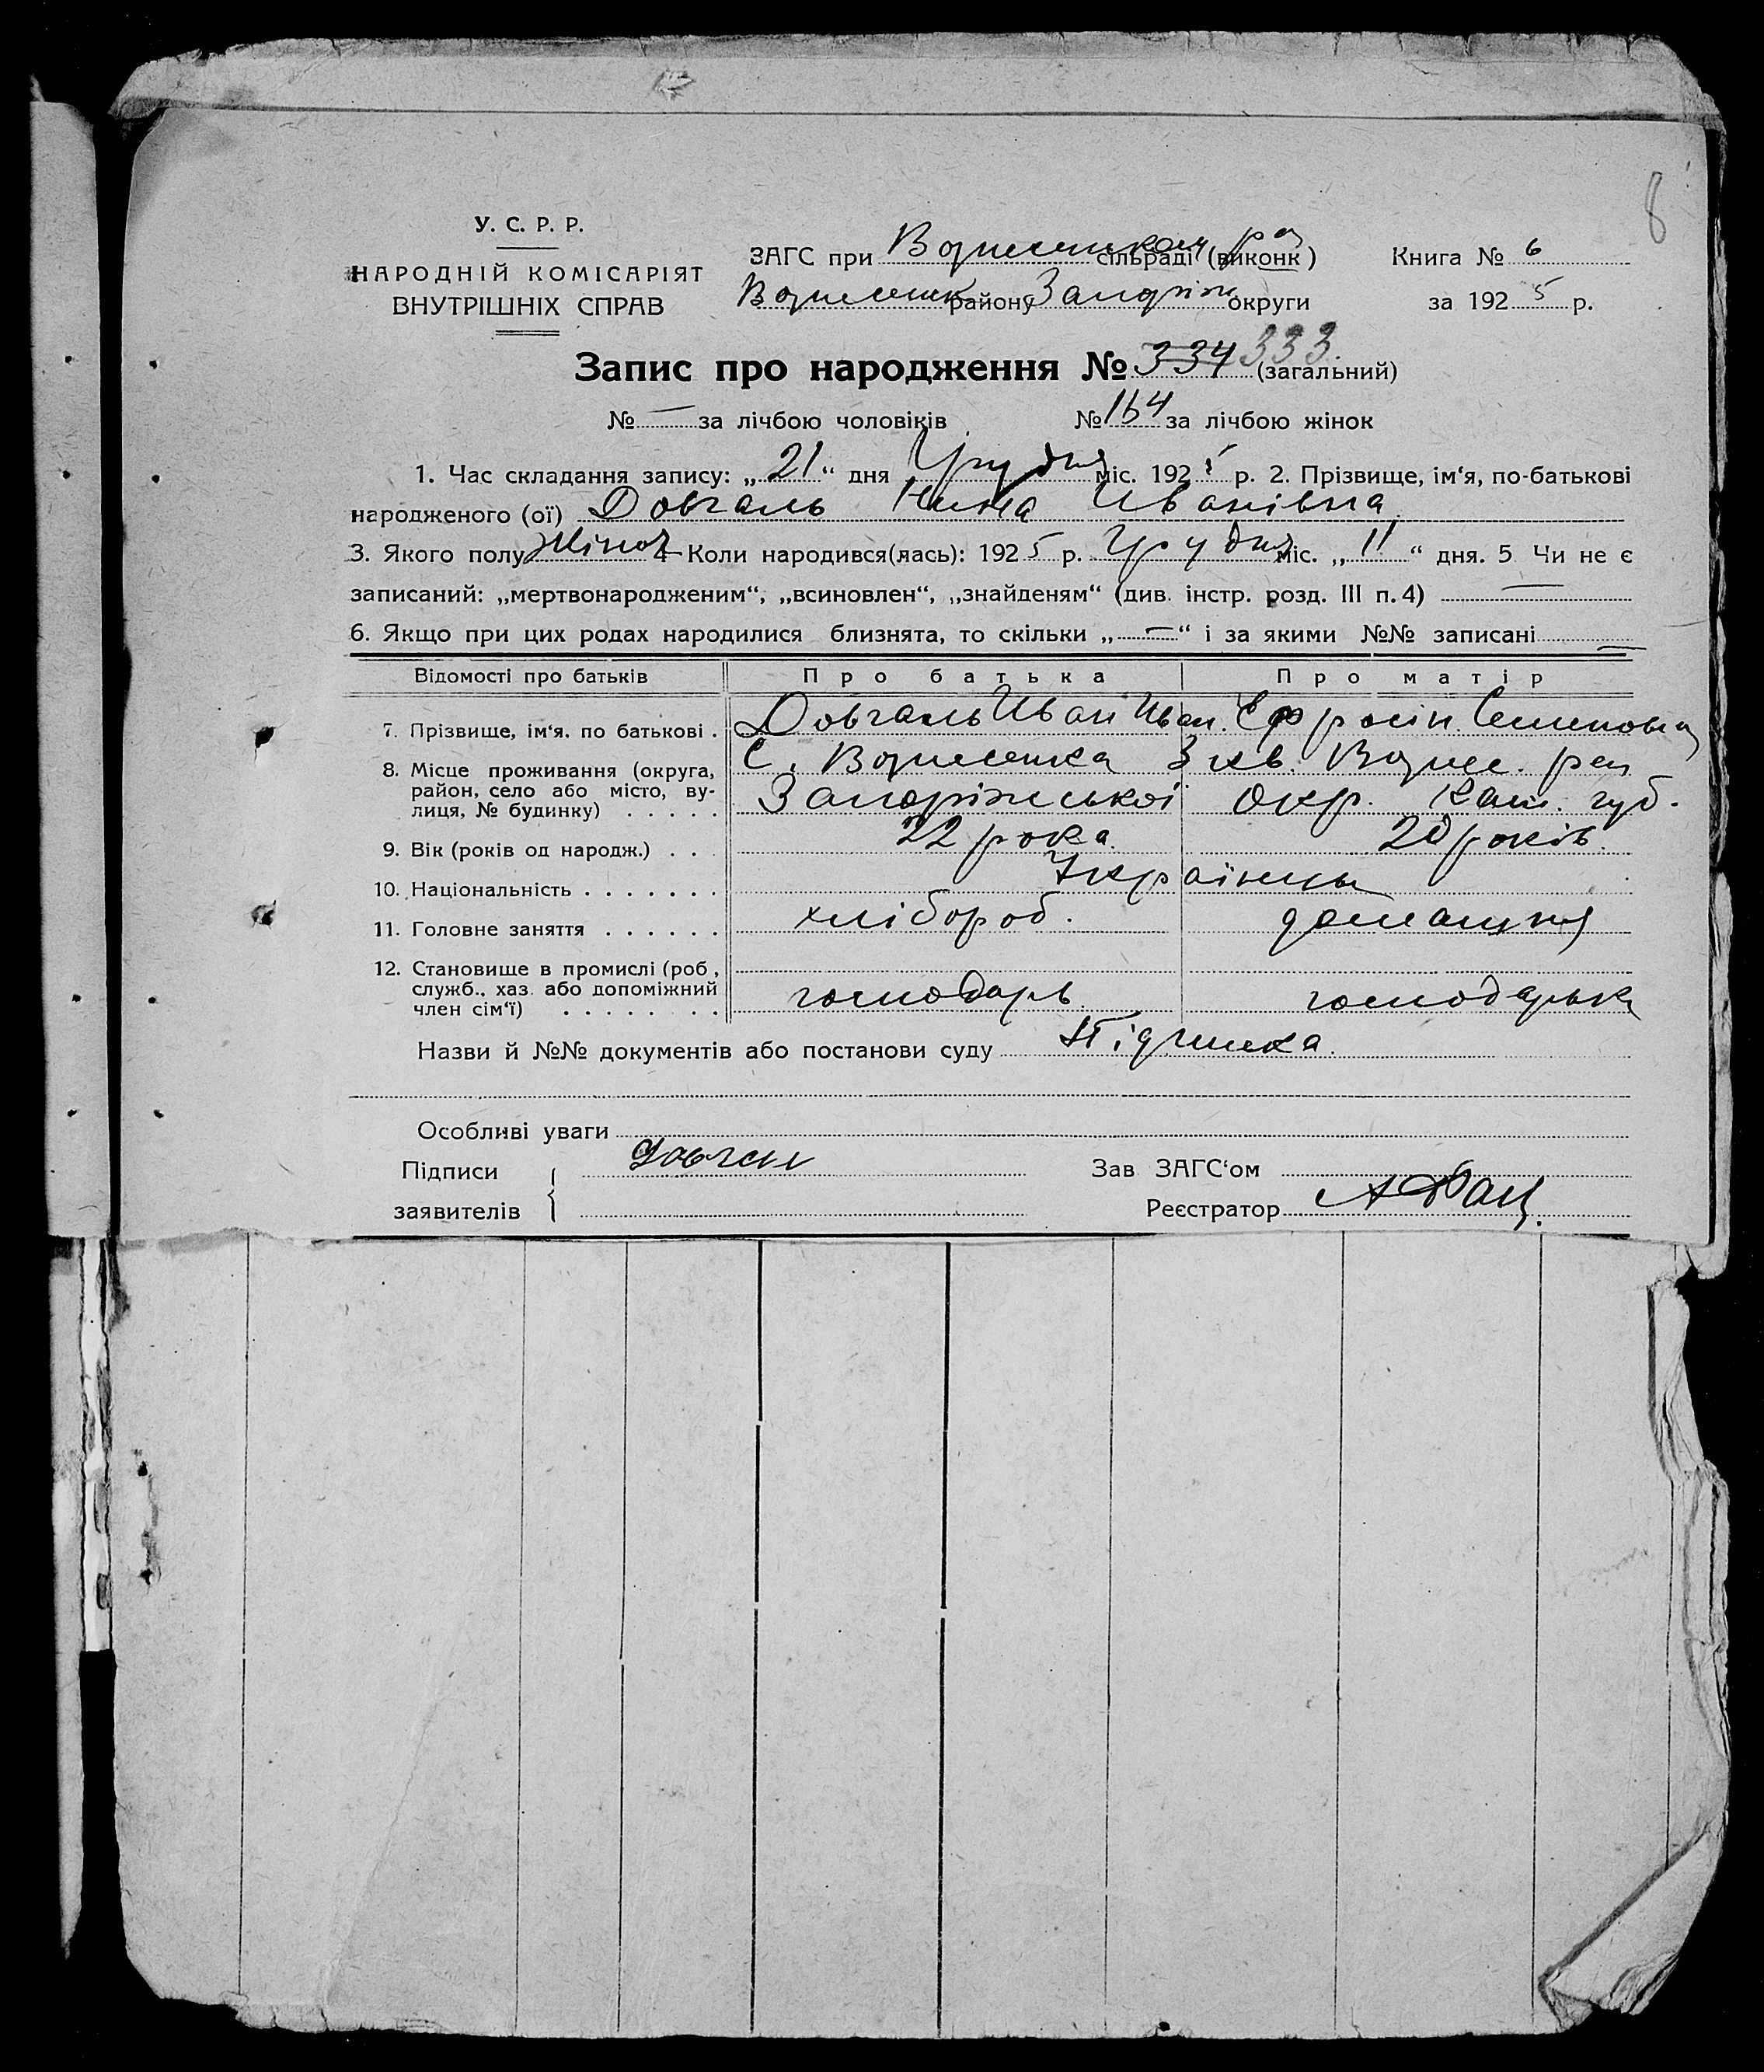 8
У. С. Р. Р.
НАРОДНІЙ КОМІСАРІЯТ
ВНУТРІШНІХ СПРАВ
ЗАГС при Вознесенском сільраді (виконк) рай
Вознесенск району Запоріж округи
Книга № 6
за 1925 р.
Запис про народження № 334 333 (загальний)
№ — за лічбою чоловіків № 164 за лічбою жінок
1. Час складання запису: „21“ дня Грудня міс. 1925 р. 2. Прізвище, ім‘я, по-батькові
народженого (ої) Довгаль Нина Иванівна
3. Якого полу Жіноч 4 Коли народився(лась): 1925 р. Грудня міс. „11“ дня. 5 Чи не є
записаний: „мертвонародженим“, „всиновлен“, „знайденям“ (див. інстр. розд. III п. 4) —
6. Якщо при цих родах народилися близнята, то скільки „—“ і за якими №№ записані —
Відомості про батьків Про батька Про матір
7. Прізвище, ім‘я. по батькові . Довгаль Иван Иван. Ефросін. Семеновна
8. Місце проживання (округа, С. Вознесенка 3 кв. Возне. рай
район, село або місто, ву-
лиця, № будинку) . . . . . Запоріжської окр. Кат. губ.
9. Вік (років од народж.) . . . 22 рока. 20 років.
10. Національність . . . . . . . Українцы
11. Головне заняття . . . . . . хлібороб. домашня
12. Становище в промислі (роб.,
служб., хаз. або допоміжний
член сім‘ї) . . . . . . . . господарь господарька
Назви й №№ документів або постанови суду Підписка.
Особливі уваги
Підписи Довгал Зав ЗАГС‘ом
заявителів Реєстратор